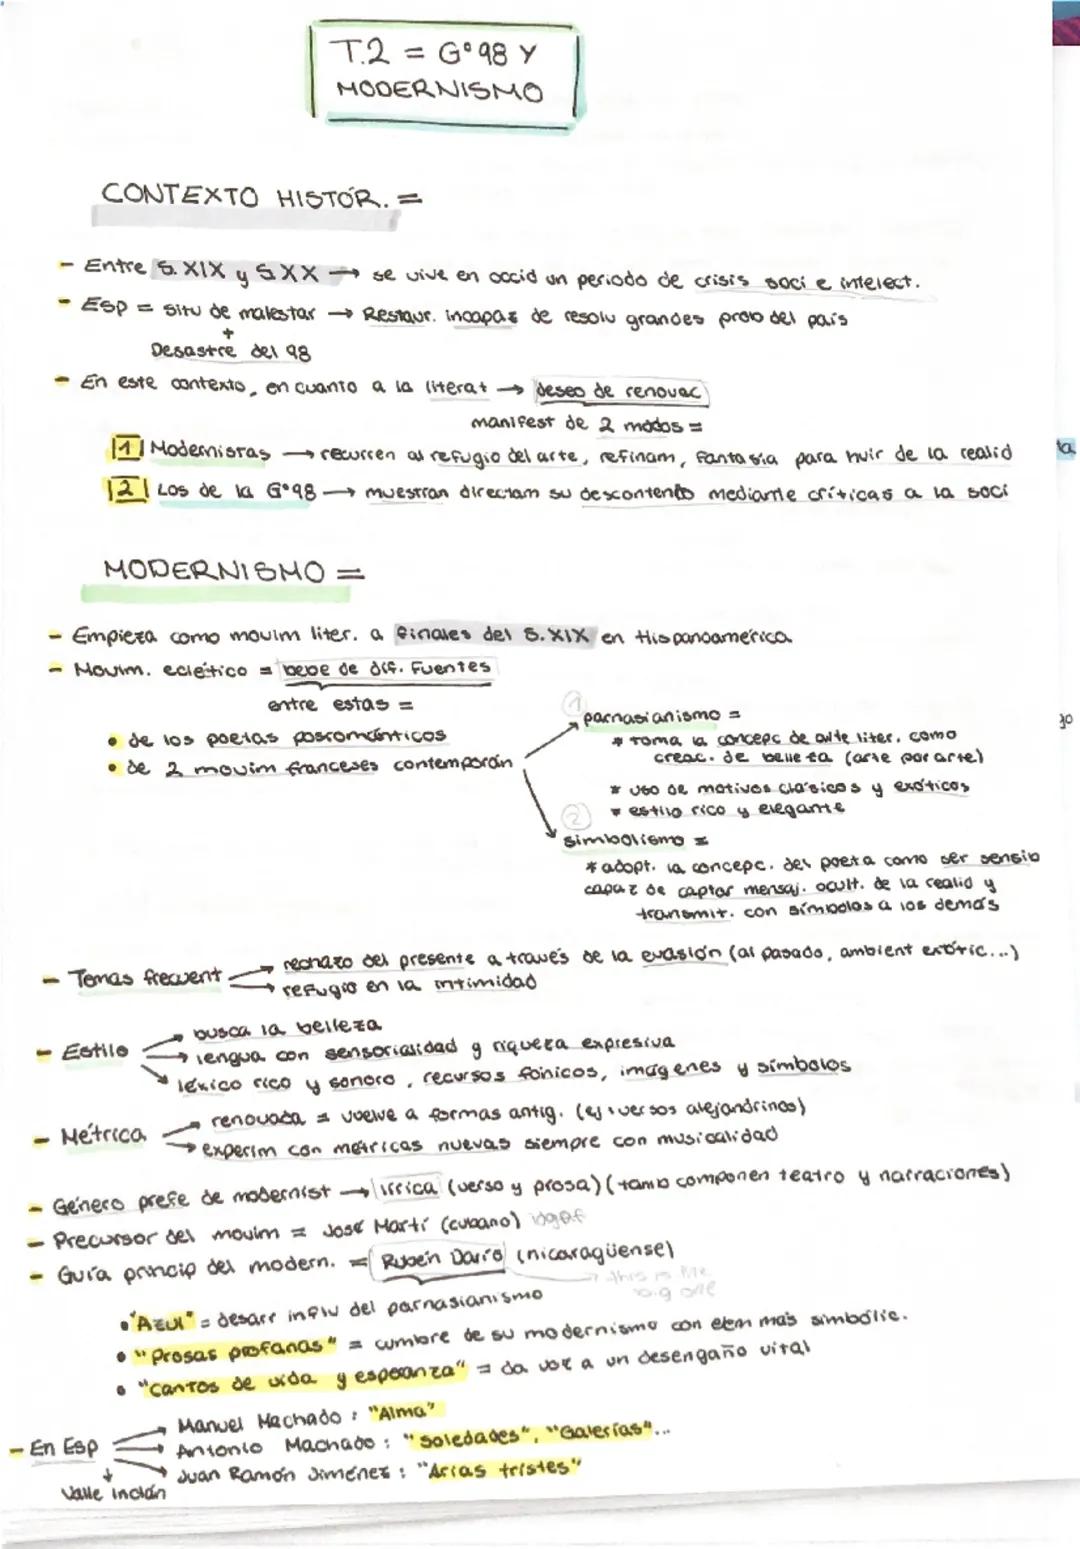 T.2 = Gº98 Y
MODERNISMO
CONTEXTO HISTÓR. =
- Entre S. XIX y S XX → se vive en occid un periodo de crisis soci e intelect.
- Esp = situ de malestar → Restaur. incapaz de resolu grandes prob del país
+
Desastre del 98
- En este contexto, en cuanto a la literat → deseo de renovac
manifest de 2 modos =
1 Modernistas → recurren al refugio del arte, refinam, fantasía para huir de la realid
2 Los de la Gº98 → muestran directam su descontento mediante críticas a la soci
MODERNISMO =
- Empieza como movim liter. a finales del S.XIX en Hispanoamérica
- Movim. eclético = bebe de dif. fuentes
entre estas =
• de los poetas posrománticos
• de 2 movim franceses contemporán
1 parnasianismo =
* toma la concepc de arte liter. como
creac. de belleza (arte por arte)
* uso de motivos clásicos y exóticos
* estilo rico y elegante
2
simbolismo =
* adopt. la concepc. del poeta como ser sensib
capaz de captar mensaj. ocult. de la realid y
transmit. con símbolos a los demás
- Temas frecuent → rechazo del presente a través de la evasión (al pasado, ambient exótic...)
→ refugio en la intimidad
- Estilo → busca la belleza
→ lengua con sensorialidad y riqueza expresiva
→ léxico rico y sonoro, recursos fónicos, imágenes y símbolos
- Métrica → renovada = vuelve a formas antig. (ej: versos alejandrinos)
→ experim con métricas nuevas siempre con musicalidad
- Género prefe de modernist → lírica (verso y prosa) (tamb componen teatro y narraciones)
- Precursor del movim = José Martí (cubano) idgaf
- Guía princip del modern. = Rubén Darío (nicaragüense)
→ this is the
big one
• "Azul" = desarr influ del parnasianismo
• "Prosas profanas" = cumbre de su modernismo con elem más simbólic.
• "Cantos de vida y esperanza" = da voz a un desengaño vital
- En Esp → Manuel Machado : "Alma"
→ Antonio Machado : "Soledades", "Galerías"...
→ Juan Ramón Jiménez : "Arias tristes"
↓
Valle Inclán